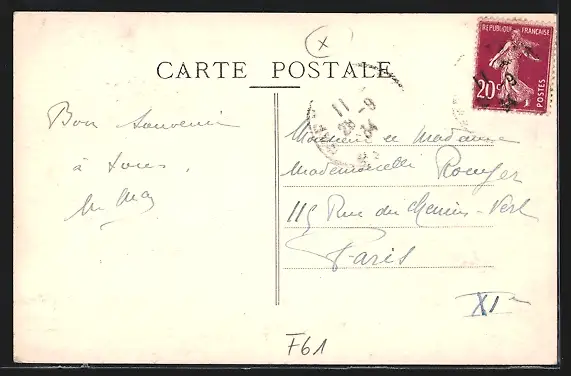 CARTE POSTALE
REPUBLIQUE FRANÇAISE
20c
POSTES
11
28-9
34
Bon Souvenir
à tous.
Monsieur et Madame
Mademoiselle Rouyer
115 Rue du Chemin-Vert
Paris
XIe
F61